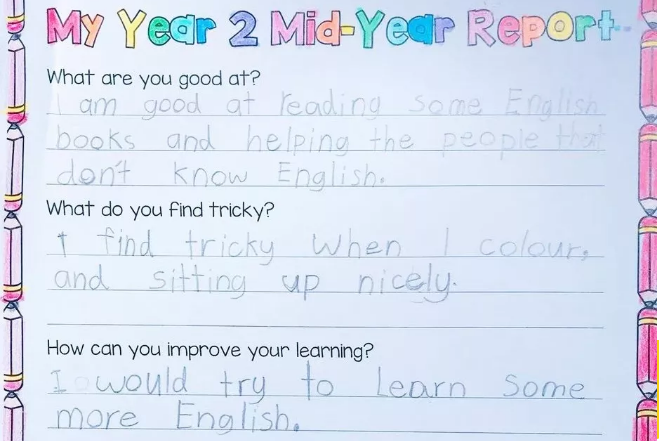 My Year 2 Mid-Year Report
What are you good at?
I am good at reading some English
books and helping the people that
don't know English.
What do you find tricky?
I find tricky when I colour,
and sitting up nicely.
How can you improve your learning?
I would try to learn some
more English.